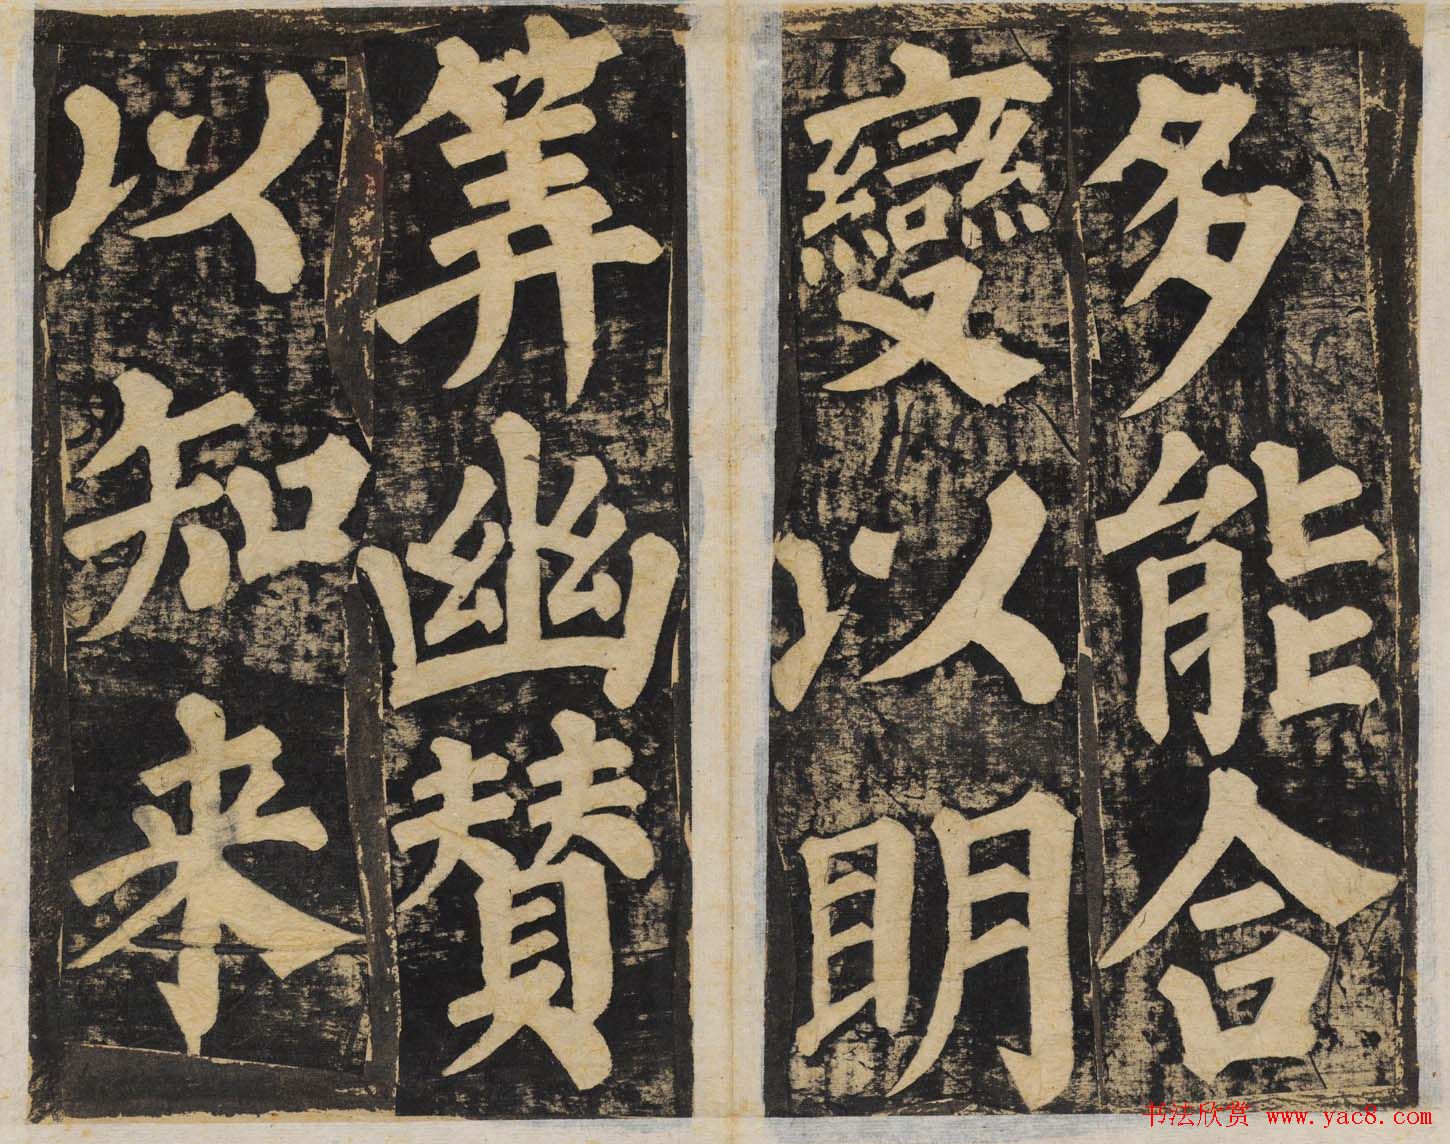 多能合
變以明
筭幽賛
以知来
书法欣赏 www.yac8.com